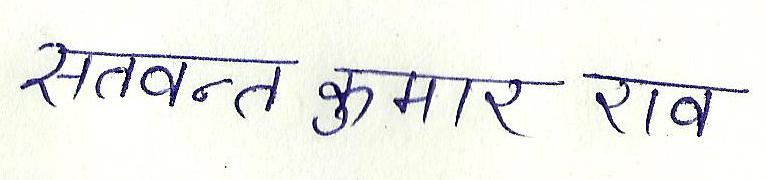 सतवन्त कुमार राव